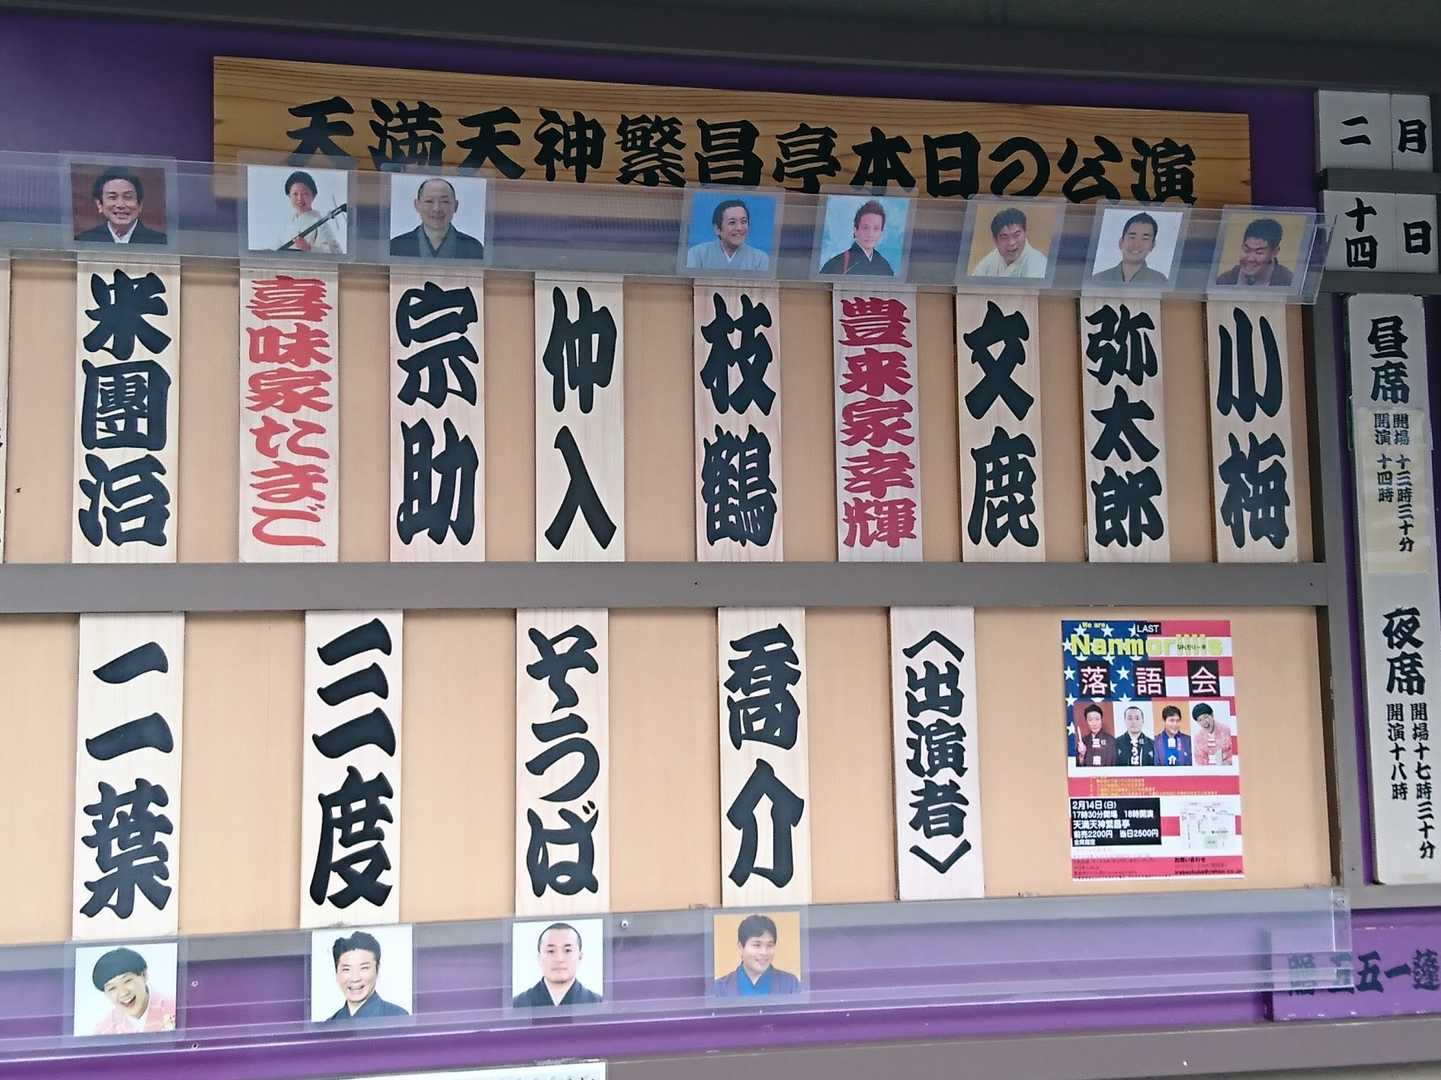 天満天神繁昌亭本日の公演
二月
十四日
昼席
開場 十三時三十分
開演 十四時
夜席
開場十七時三十分
開演十八時
小梅
弥太郎
文鹿
豊来家幸輝
枝鶴
仲入
宗助
喜味家たまご
米團治
We are
LAST
Nanmorillis
落語会
2月14日(日)
17時30分開場 18時開演
天満天神繁昌亭
前売2200円 当日2500円
〈出演者〉
喬介
そうば
三度
二葉